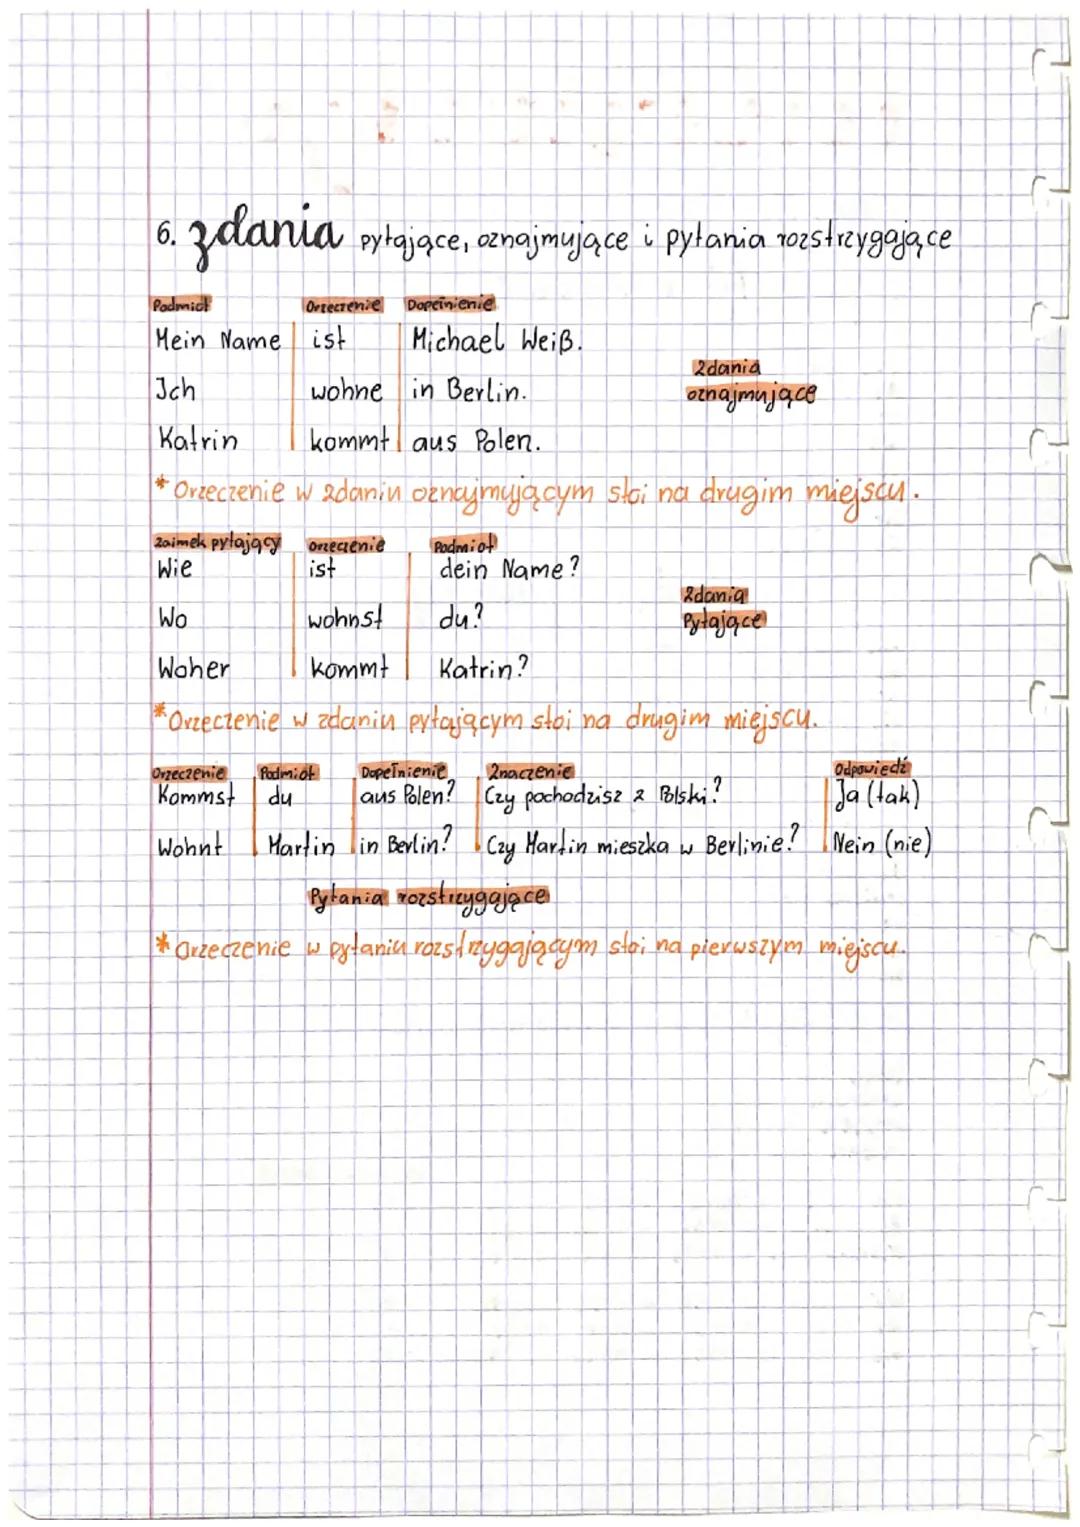 6. zdania pytające, oznajmujące i pytania rozstrzygające
Podmiot Orzeczenie Dopełnienie
Mein Name ist Michael Weiß.
Zdania
Ich wohne in Berlin.
oznajmujące
Katrin kommt aus Polen.
* Orzeczenie w zdaniu oznajmującym stoi na drugim miejscu.
Zaimek pytający orzeczenie Podmiot
Wie ist dein Name?
Zdania
Wo wohnst du?
Pytające
Woher kommt Katrin?
* Orzeczenie w zdaniu pytającym stoi na drugim miejscu.
Orzeczenie Podmiot Dopełnienie Znaczenie Odpowiedź
Kommst du aus Polen? Czy pochodzisz z Polski? Ja (tak)
Wohnt Martin in Berlin? Czy Martin mieszka w Berlinie? Nein (nie)
Pytania rozstrzygające
* Orzeczenie w pytaniu rozstrzygającym stoi na pierwszym miejscu.